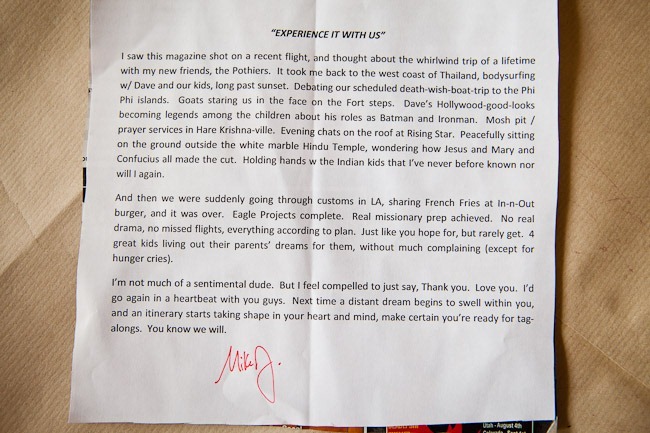 "EXPERIENCE IT WITH US"
I saw this magazine shot on a recent flight, and thought about the whirlwind trip of a lifetime
with my new friends, the Pothiers.  It took me back to the west coast of Thailand, bodysurfing
w/ Dave and our kids, long past sunset.  Debating our scheduled death-wish-boat-trip to the Phi
Phi islands.  Goats staring us in the face on the Fort steps.  Dave's Hollywood-good-looks
becoming legends among the children about his roles as Batman and Ironman.  Mosh pit /
prayer services in Hare Krishna-ville.  Evening chats on the roof at Rising Star.  Peacefully sitting
on the ground outside the white marble Hindu Temple, wondering how Jesus and Mary and
Confucius all made the cut.  Holding hands w the Indian kids that I've never before known nor
will I again.
And then we were suddenly going through customs in LA, sharing French Fries at In-n-Out
burger, and it was over.  Eagle Projects complete.  Real missionary prep achieved.  No real
drama, no missed flights, everything according to plan.  Just like you hope for, but rarely get.  4
great kids living out their parents' dreams for them, without much complaining (except for
hunger cries).
I'm not much of a sentimental dude.  But I feel compelled to just say, Thank you.  Love you.  I'd
go again in a heartbeat with you guys.  Next time a distant dream begins to swell within you,
and an itinerary starts taking shape in your heart and mind, make certain you're ready for tag-
alongs.  You know we will.
MikeD.
Utah - August 4th